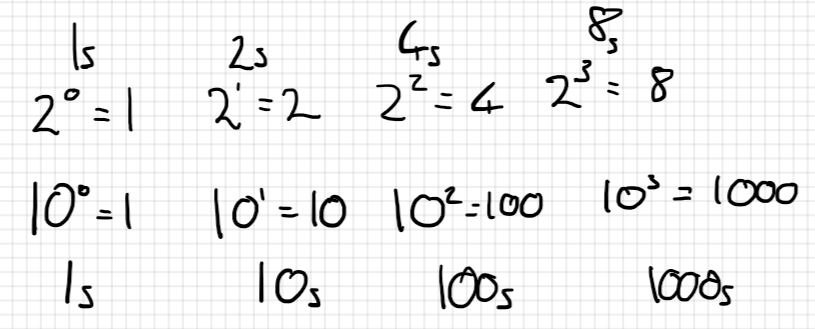 1s 2s 4s 8s
2⁰ = 1 2¹ = 2 2² = 4 2³ = 8
10⁰ = 1 10¹ = 10 10² = 100 10³ = 1000
1s 10s 100s 1000s